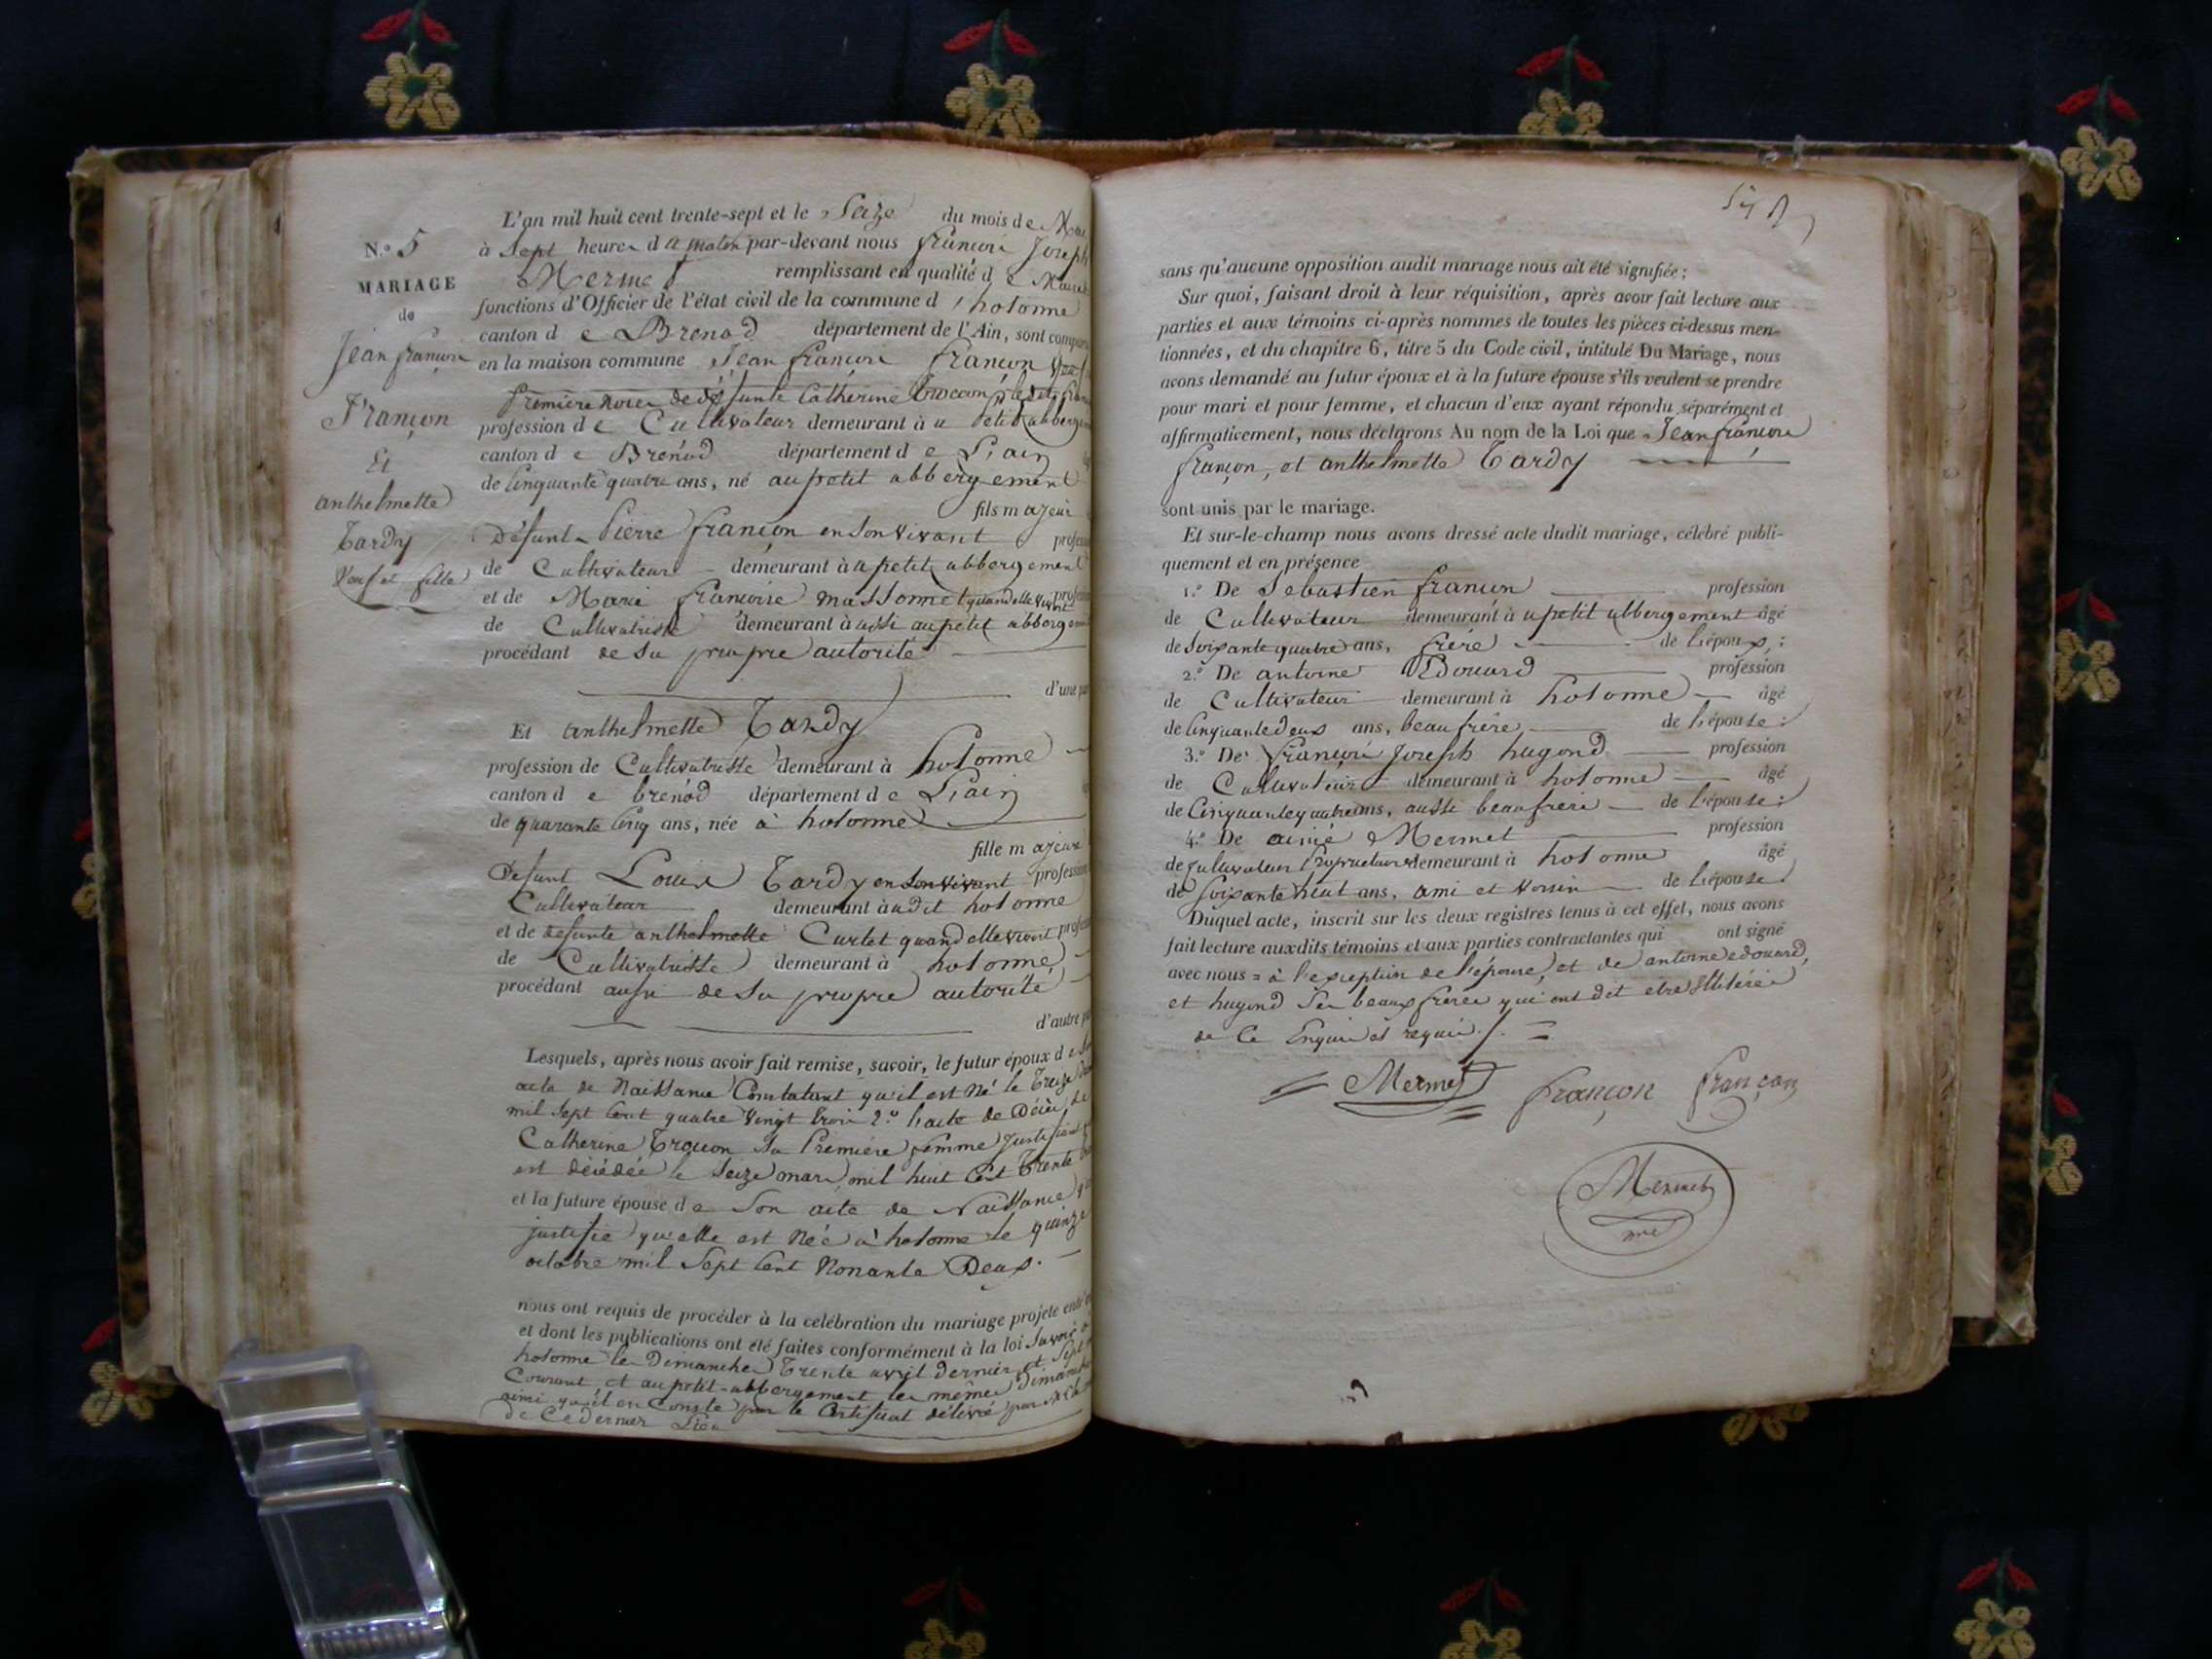 N.o 5
MARIAGE
de
Jean françois
Françon
Et
anthelmette
Tardy
Veuf et fille
L'an mil huit cent trente-sept et le Seize du mois de
à Sept heures du matin par-devant nous françois Joseph
Mermet remplissant en qualité de Maire
fonctions d'Officier de l'état civil de la commune d'hotonne
canton de Brenod département de l'Ain, sont
en la maison commune Jean françois françon
Première noces de défunte Catherine
profession de Cultivateur demeurant à u petit abbergement
canton de Brenod département de L'ain
de Cinquante quatre ans, né au petit abbergement
fils majeur
Défunt Pierre françon en son vivant
de Cultivateur demeurant à u petit abbergement
et de Marie françoise massonnet quand elle vivoit
de Cultivatrisse demeurant à ussi au petit abbergement
procédant de sa propre autorité
d'une
Et anthelmette Tardy
profession de Cultivatrisse demeurant à hotonne
canton de brenod département de L'ain
de quarante Cinq ans, née à hotonne
fille majeure
Defunt Louis Tardy en son vivant profession
Cultivateur demeurant à udit hotonne
et de defunte anthelmette Curtet quand elle vivoit
de Cultivatrisse demeurant à hotonne
procédant aussi de sa propre autorité
d'autre
Lesquels, après nous avoir fait remise, savoir, le futur époux de
acte de Naissance Constatant qu'il est Né le Treize
mil Sept Cent quatre Vingt trois 2.o l'acte de Décès de
Catherine sa Première femme
est décédée le Seize mars mil huit Cent Trente
et la future épouse de Son acte de Naissance
justifie qu'elle est Née à hotonne le quinze
octobre mil Sept Cent Nonante Deux.
nous ont requis de procéder à la célébration du mariage projeté
et dont les publications ont été faites conformément à la loi Savoir
hotonne les Dimanches Trente avril dernier et Sept
Courant et au petit-abbergement les mêmes
ainsi qu'il en Conste par le Certificat délivré par
de Ce dernier Lieu
sans qu'aucune opposition audit mariage nous ait été signifiée;
Sur quoi, faisant droit à leur réquisition, après avoir fait lecture aux
parties et aux témoins ci-après nommés de toutes les pièces ci-dessus men-
tionnées, et du chapitre 6, titre 5 du Code civil, intitulé Du Mariage, nous
avons demandé au futur époux et à la future épouse s'ils veulent se prendre
pour mari et pour femme, et chacun d'eux ayant répondu séparément et
affirmativement, nous déclarons Au nom de la Loi que Jean françois
françon, et anthelmette Tardy
sont unis par le mariage.
Et sur-le-champ nous avons dressé acte dudit mariage, célébré publi-
quement et en présence
1.o De Sébastien françon profession
de Cultivateur demeurant à u petit abbergement âgé
de Soixante quatre ans, frère de l'époux;
2.o De antoine Edouard profession
de Cultivateur demeurant à hotonne âgé
de Cinquante deux ans, beau frère de l'épouse;
3.o De françois Joseph hugond profession
de Cultivateur demeurant à hotonne âgé
de Cinquante quatre ans, aussi beau frère de l'épouse;
4.o De aimé Mermet profession
de Cultivateur Propriétaire demeurant à hotonne âgé
de Soixante huit ans, ami et voisin de l'épouse.
Duquel acte, inscrit sur les deux registres tenus à cet effet, nous avons
fait lecture auxdits témoins et aux parties contractantes qui ont signé
avec nous = à l'exception de l'épouse, et de antoine edouard,
et hugond Ses beaux frères qui ont dit être illitérés
de Ce Enquis et requis ./. =
Mermet françon françon
Mermet